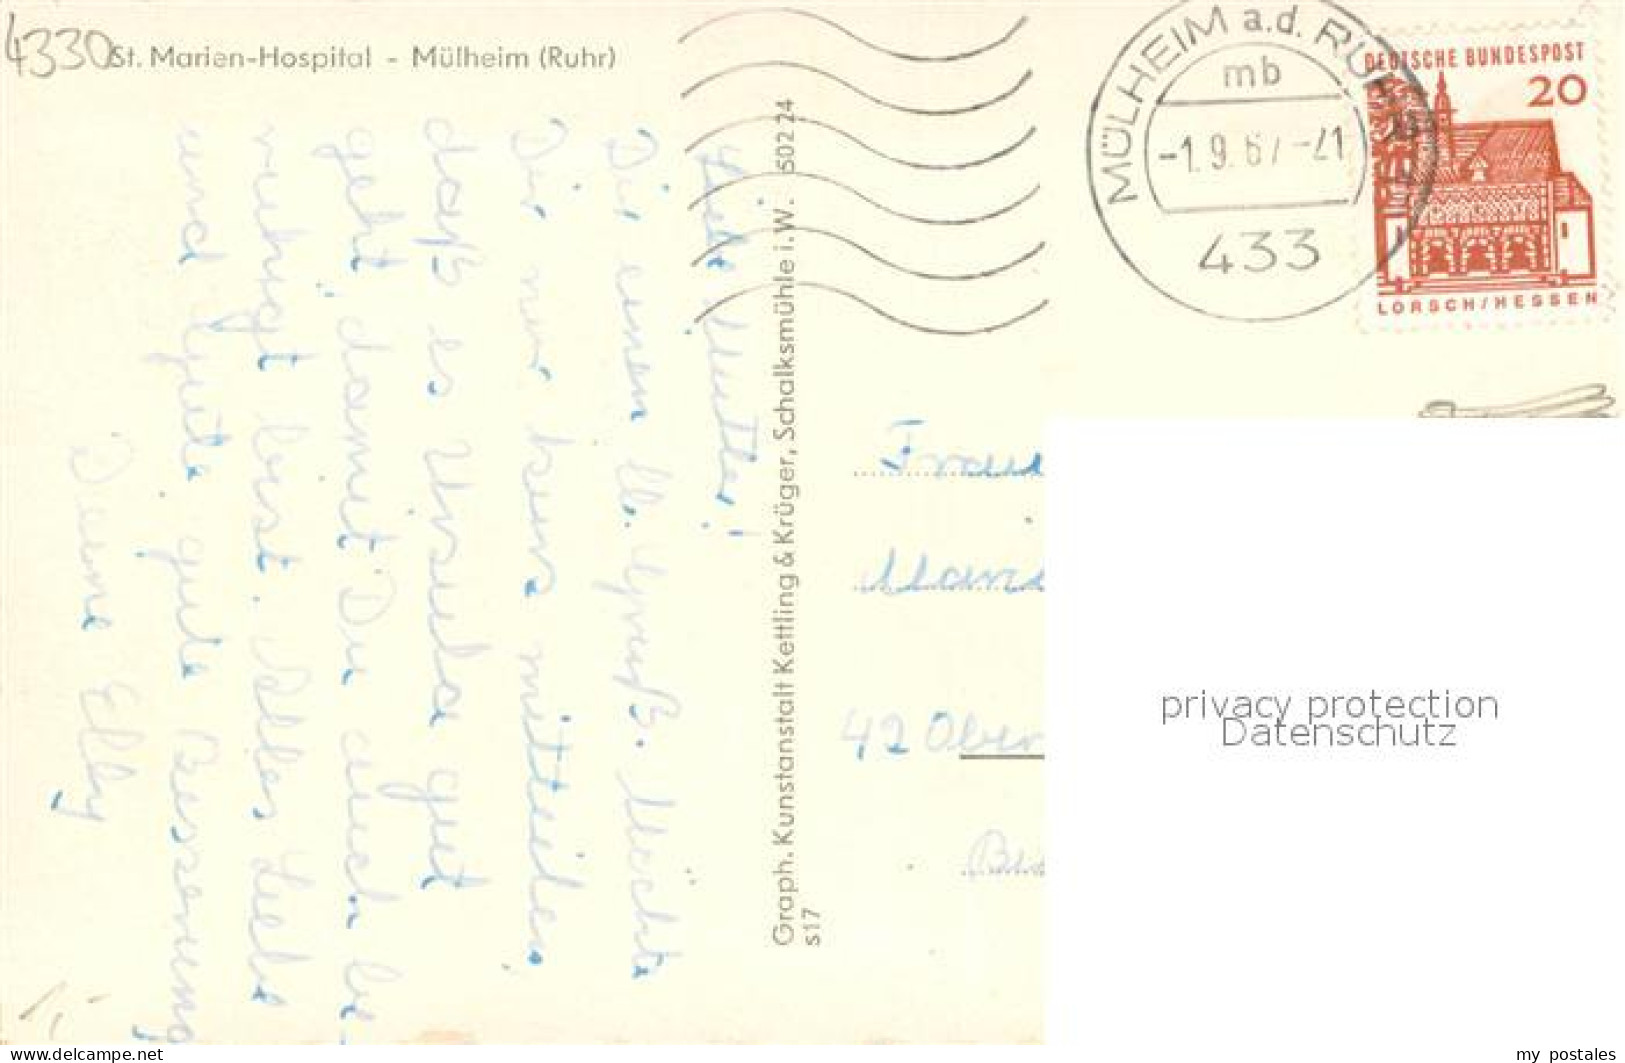 4330
St. Marien-Hospital - Mülheim (Ruhr)
MÜLHEIM a.d. RUHR
mb
-1.9.67-21
433
DEUTSCHE BUNDESPOST
20
LORSCH/HESSEN
Liebe Mutter!
Dir einen lb. Gruß. Möchte
Dir nur kurz mitteilen,
daß es Ursula gut
geht, damit Du auch be-
ruhigt bist. Alles Liebe
und Gute gute Besserung
Deine Elly
Graph. Kunstanstalt Kettling & Krüger, Schalksmühle i.W. 502 24
s17
Frau
42 Ober
privacy protection
Datenschutz
www.delcampe.net
my_postales